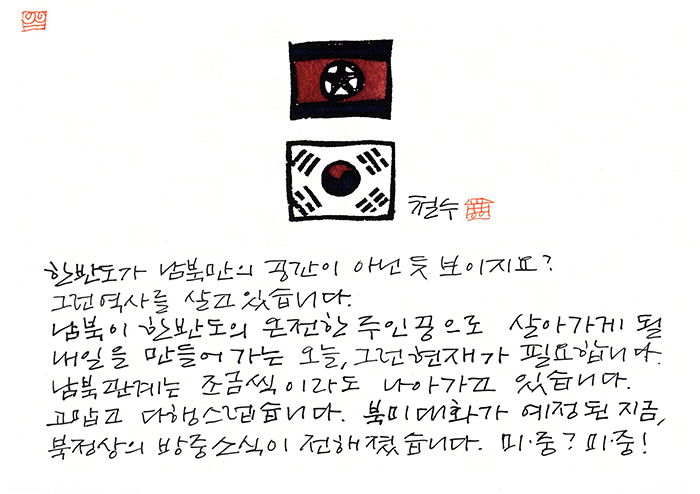 철수
한반도가 남북만의 공간이 아닌 듯 보이지요?
그런 역사를 살고 있습니다.
남북이 한반도의 온전한 주인공으로 살아가게 될
내일을 만들어 가는 오늘, 그런 현재가 필요합니다.
남북관계는 조금씩이라도 나아가고 있습니다.
고맙고 다행스럽습니다. 북미대화가 예정된 지금,
북정상의 방중소식이 전해졌습니다. 미·중? 미·중!